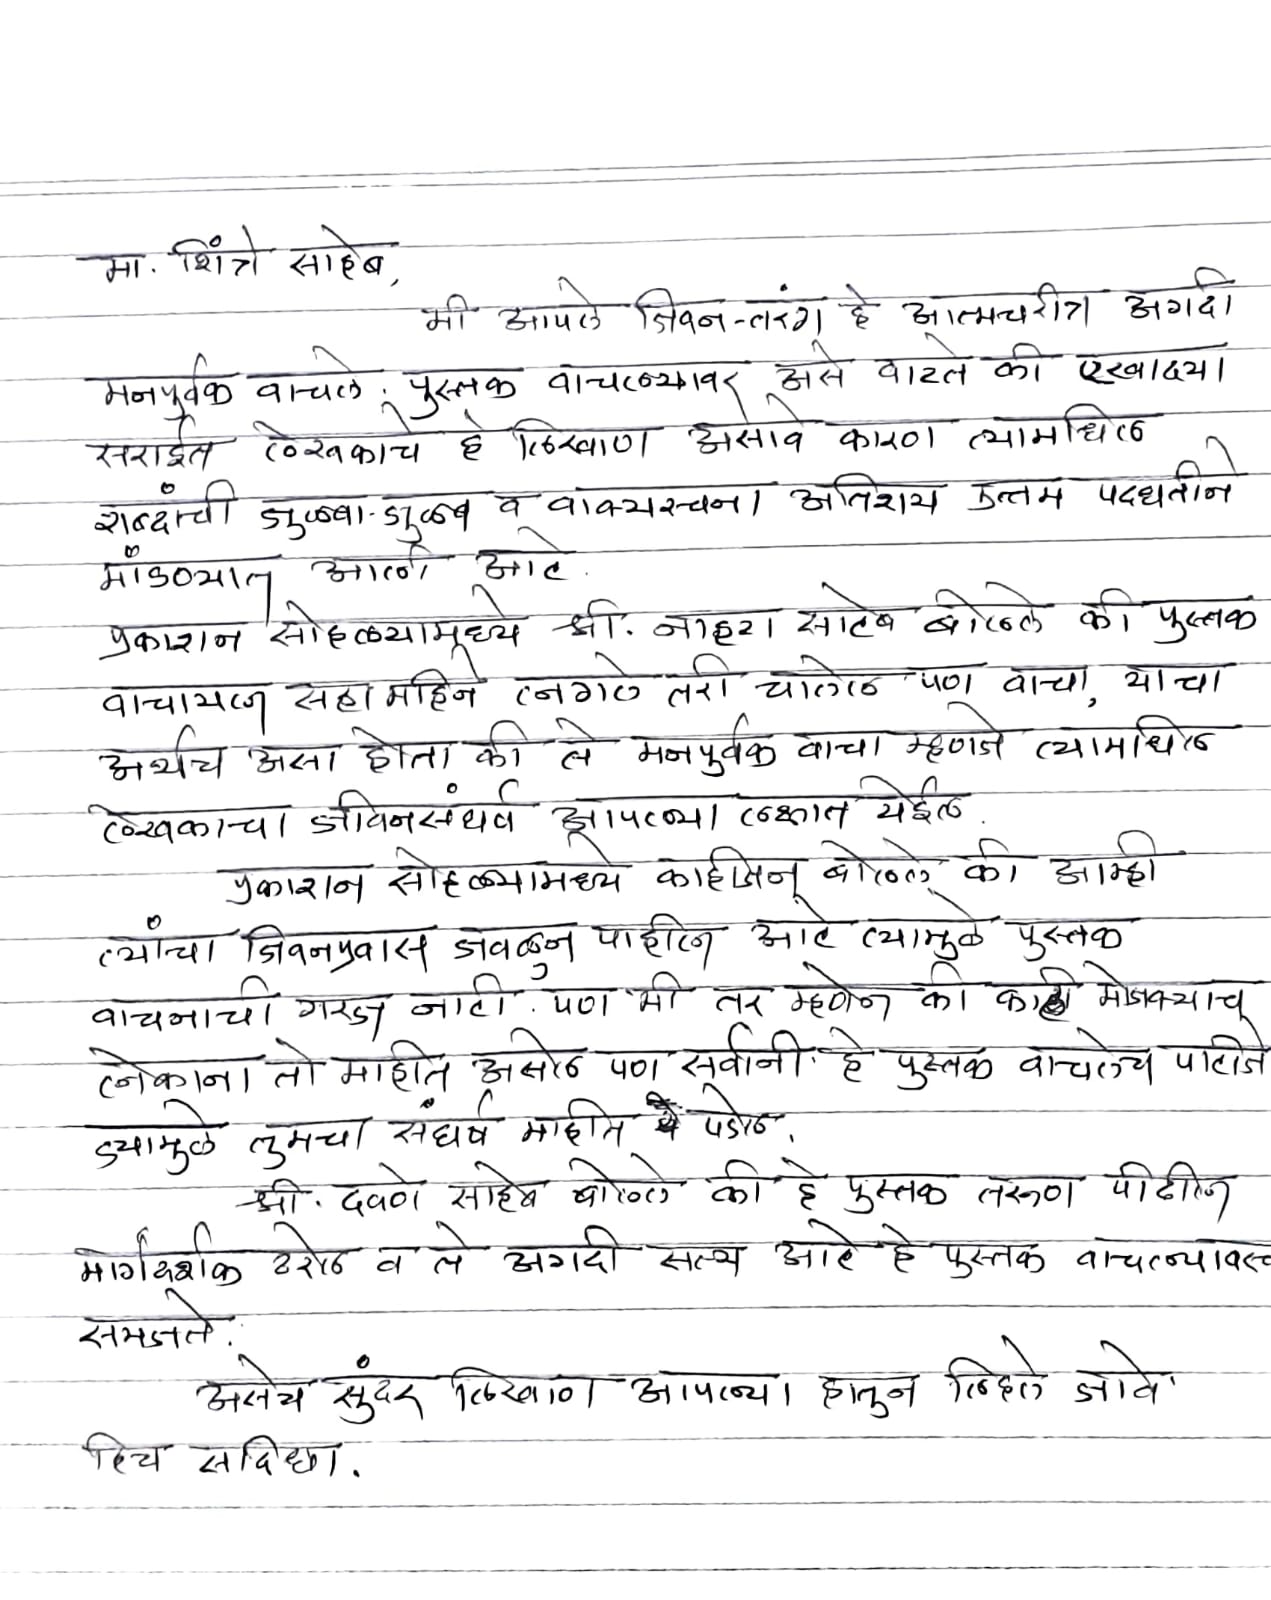 मा. शिंत्रे साहेब,
मी आपले जिवन-तरंग हे आत्मचरीत्र अगदी
मनपुर्वक वाचले. पुस्तक वाचल्यावर असे वाटते की एखादया
सराईत लेखकाचे हे लिखाण असावे कारण त्यामधिल
शब्दांची जुळवा-जुळव व वाक्यरचना अतिशय उत्तम पदधतीने
मांडण्यात आली आहे.
प्रकाशन सोहळ्यामध्ये श्री. नाहटा साहेब बोलले की पुस्तक
वाचायला सहा महिने लागले तरी चालेल पण वाचा, याचा
अर्थच असा होता की ते मनपुर्वक वाचा म्हणजे त्यामधिल
लेखकाचा जीवनसंघर्ष आपल्या लक्षात येईल.
प्रकाशन सोहळ्यामध्ये काहीजन बोलले की आम्ही
त्यांचा जिवनप्रवास जवळुन पाहीला आहे त्यामुळे पुस्तक
वाचनाची गरज नाही. पण मी तर म्हणेन की काही मोजक्याच
लोकाना तो माहीत असेल पण सर्वांनी हे पुस्तक वाचलेच पाहिजे
ज्यामुळे तुमचा संघर्ष माहीत पडेल.
श्री. दवणे साहेब बोलले की हे पुस्तक तरूण पीढीला
मार्गदर्शक ठरेल व ते अगदी सत्य आहे हे पुस्तक वाचल्यावरच
समजते.
असेच सुंदर लिखाण आपल्या हातुन लिहले जावे
हिच सदिच्छा.